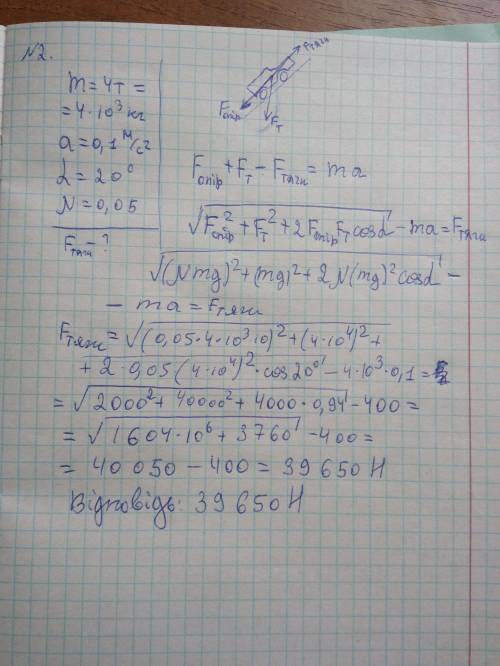 №2.
m = 4т =
= 4·10³ кг
a = 0,1 м/с²
α = 20°
N = 0,05
Fтяги - ?
Fтяги
Fопір
Fт
Fопір + Fт - Fтяги = ma
√(Fопір² + Fт² + 2FопірFт cosα) - ma = Fтяги
√((Nmg)² + (mg)² + 2N(mg)² cosα) -
- ma = Fтяги
Fтяги = √((0,05·4·10³·10)² + (4·10⁴)² +
+ 2·0,05(4·10⁴)²·cos20°) - 4·10³·0,1 =
= √(2000² + 40000² + 4000·0,94) - 400 =
= √(1604·10⁶ + 3760) - 400 =
= 40 050 - 400 = 39 650 Н
Відповідь: 39 650 Н